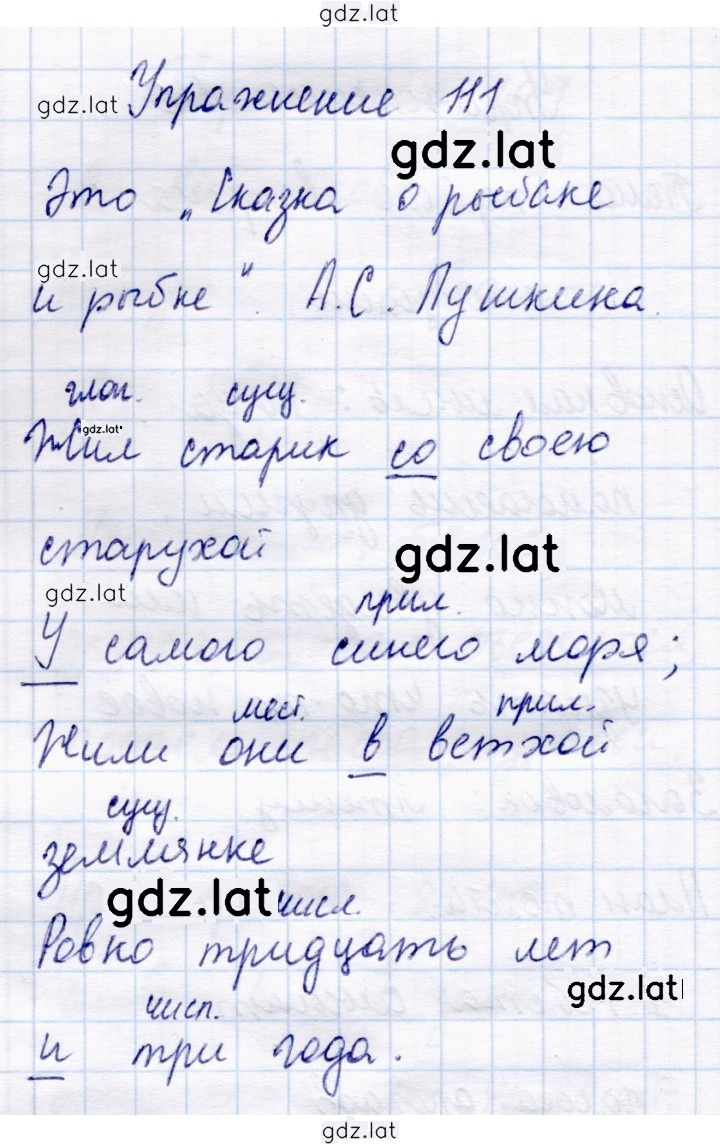 gdz.lat
gdz.lat Упражнение 111
gdz.lat
Это „Сказка о рыбаке
gdz.lat
и рыбке“. А.С. Пушкина.
глаг. сущ.
gdz.lat
Жил старик со своею
старухой gdz.lat
gdz.lat прил.
У самого синего моря;
мест. прил.
Жили они в ветхой
сущ.
землянке
gdz.lat числ.
Ровно тридцать лет
gdz.lat
числ.
и три года.
gdz.lat